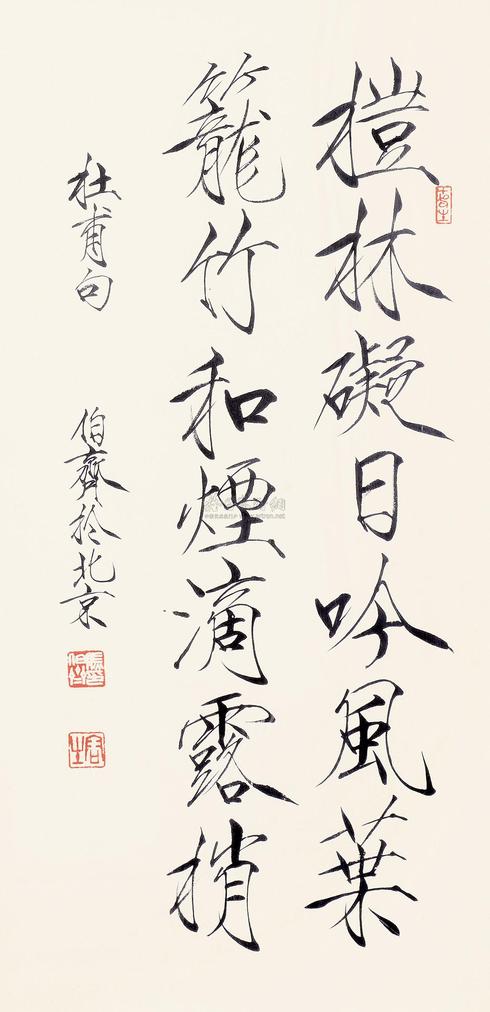 榿林礙日吟風葉
籠竹和煙滴露梢
杜甫句
伯齊於北京